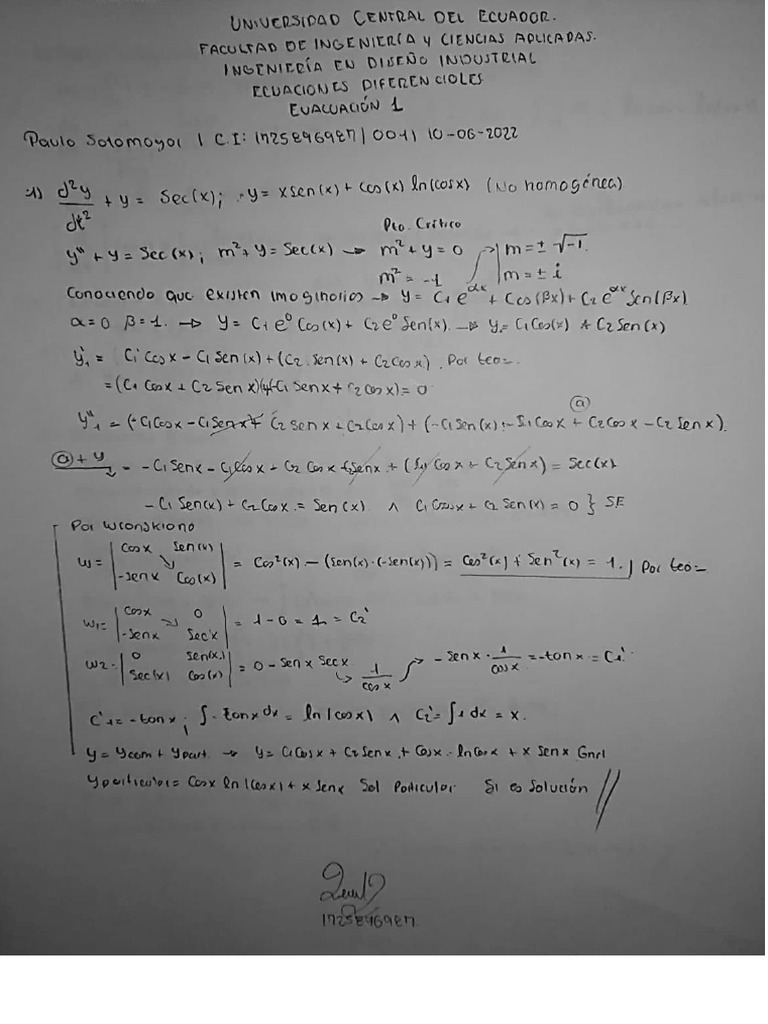 UNIVERSIDAD CENTRAL DEL ECUADOR.
FACULTAD DE INGENIERÍA Y CIENCIAS APLICADAS.
INGENIERÍA EN DISEÑO INDUSTRIAL
ECUACIONES DIFERENCIALES
EVALUACIÓN 1
Paulo Sotomayor | C.I: 1725896987 / 001 | 10-06-2022
1) d²y/dt² + y = Sec(x); y = x sen(x) + cos(x) ln(cosx) (No homogénea)
Pto. Crítico
y'' + y = Sec(x); m² + y = Sec(x) → m² + y = 0 m = ± √-1.
m² = -1 m = ± i
Conociendo que existen imaginarios → y = C1 e^αx + Cos(βx) + C2 e^αx Sen(βx)
α = 0 β = 1. → y = C1 e⁰ Cos(x) + C2 e⁰ Sen(x). → y = C1 Cos(x) + C2 Sen(x)
y'1 = C1' Cosx - C1 Sen(x) + (C2. Sen(x) + C2 Cosx). Por teo=
= (C1 Cosx + C2 Senx) y (-C1 Senx + C2 Cosx) = 0
ⓐ
y''1 = (-C1 Cosx - C1 Senx + C2 senx + C2 Cosx) + (-C1 Sen(x) - C1 Cosx + C2 Cosx - C2 Senx).
ⓐ + y = -C1 Senx - C1 Cosx + C2 Cosx - C2 Senx + (C1 Cosx + C2 Senx) = Sec(x)
-C1 Sen(x) + C2 Cosx = Sen(x) ∧ C1 Cosx + C2 Sen(x) = 0 } SE
Por Wronskiano
W = |Cosx Sen(x) / -senx Cos(x)| = Cos²(x) - (Sen(x)·(-Sen(x))) = Cos²(x) + Sen²(x) = 1. | Por teo=
W1 = |Cosx 0 / -Senx Secx| = 1 - 0 = 1 = C2'
W2 = |0 Sen(x) / Sec(x) Cos(x)| = 0 - Senx Secx → 1/cosx → -Senx · 1/cosx = -tanx = C1'
C'1 = -tanx; ∫ -tanx dx = ln|cosx| ∧ C2' = ∫1 dx = x.
y = ycom + ypart → y = C1 Cosx + C2 Senx + Cosx · lnCosx + x Senx Gnrl
yparticular = Cosx ln|Cosx| + x Senx Sol Particular Si es solución //
1725896987